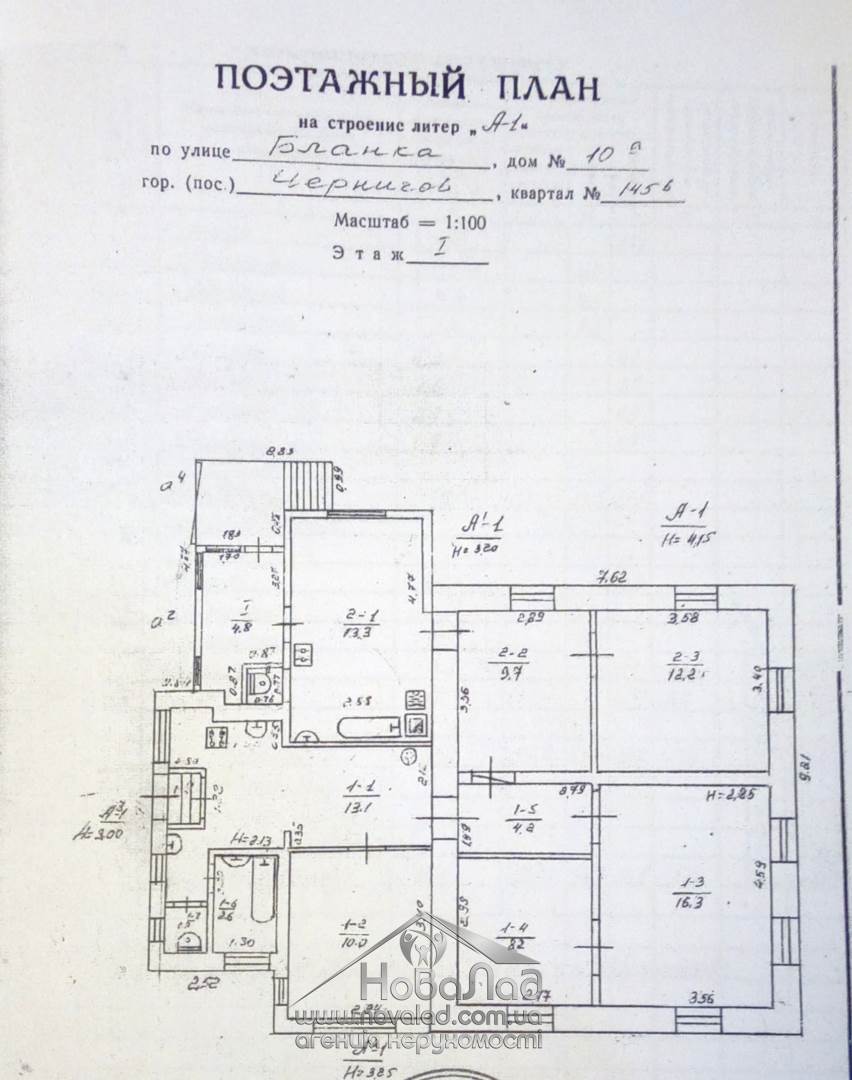 ПОЭТАЖНЫЙ ПЛАН
на строение литер „А-1“
по улице Бланка, дом № 10 а
гор. (пос.) Чернигов, квартал № 145 в
Масштаб = 1:100
Этаж I
8,89
а⁴
А¹-1
Н= 3,20
А-1
Н= 4,15
7,62
а²
I
4,8
2-1
13,3
4,77
2,58
2,89
2-2
9,7
3,36
3,58
2-3
12,2
3,40
9,21
0,87
0,87
0,77
0,76
1-1
13,1
0,79
1-5
4,2
Н=2,85
А³-1
Н=3,00
Н=2,13
1-3
16,3
4,59
1-2
10,0
1-4
8,2
2,99
1-6
3,6
1,30
2,52
2,17
3,56
НоваЛад
www.novalad.com.ua
агенція нерухомості
Н= 3,25